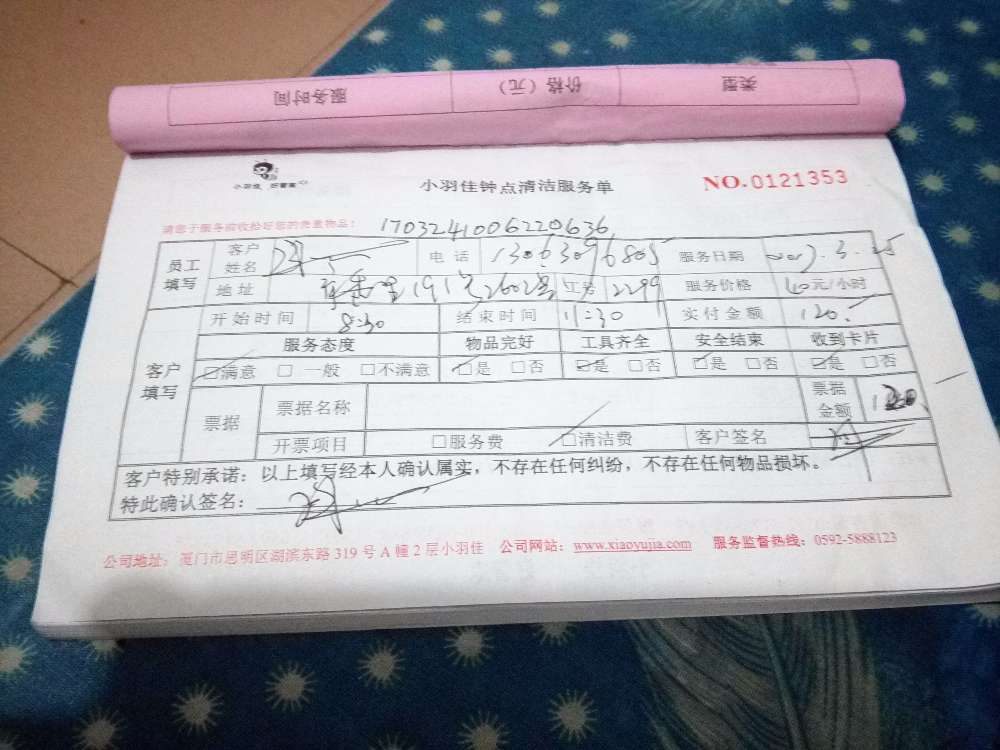 服务时间 价格（元） 类型
小羽佳 好管家
小羽佳钟点清洁服务单
NO.0121353
请您于服务前收拾好您的贵重物品：
1703241006220636
员工填写 客户姓名 电话 13063096805 服务日期 2017.3.25
地址 191号2602 工号 2299 服务价格 40元/小时
客户填写 开始时间 8:30 结束时间 11:30 实付金额 120.
服务态度 物品完好 工具齐全 安全结束 收到卡片
☑满意 □一般 □不满意 ☑是 □否 ☑是 □否 ☑是 □否 ☑是 □否
票据 票据名称 票据金额
开票项目 □服务费 ☑清洁费 客户签名
客户特别承诺：以上填写经本人确认属实，不存在任何纠纷，不存在任何物品损坏。
特此确认签名：
公司地址：厦门市思明区湖滨东路319号A幢2层小羽佳 公司网站：www.xiaoyujia.com 服务监督热线：0592-5888123